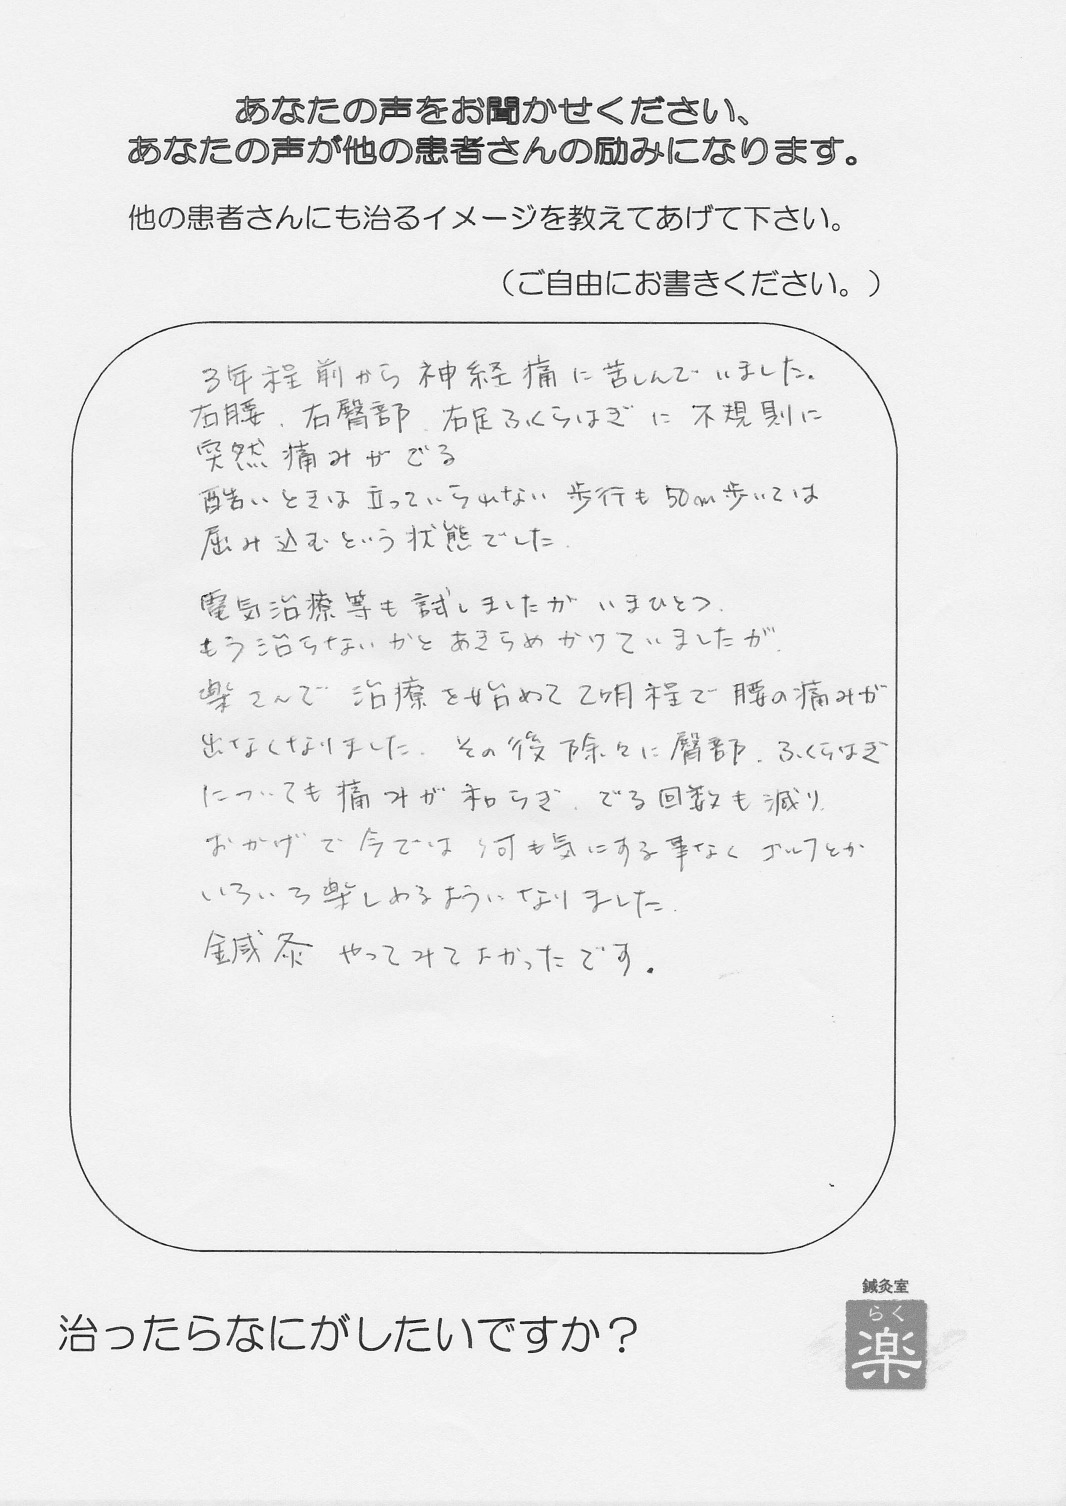 あなたの声をお聞かせください、
あなたの声が他の患者さんの励みになります。
他の患者さんにも治るイメージを教えてあげて下さい。
（ご自由にお書きください。）
3年程前から神経痛に苦しんでいました。
右腰、右臀部、右足ふくらはぎに不規則に
突然痛みがでる
酷いときは立っていられない 歩行も50m歩いては
屈み込むという状態でした。
電気治療等も試しましたがいまひとつ、
もう治らないかとあきらめかけていましたが、
楽さんで治療を始めて2ヶ月程で腰の痛みが
出なくなりました。その後除々に臀部、ふくらはぎ
についても痛みが和らぎ、でる回数も減り、
おかげで今では何も気にする事なくゴルフとか
いろいろ楽しめるようになりました。
鍼灸やってみてよかったです。
治ったらなにがしたいですか？
鍼灸室
らく
楽